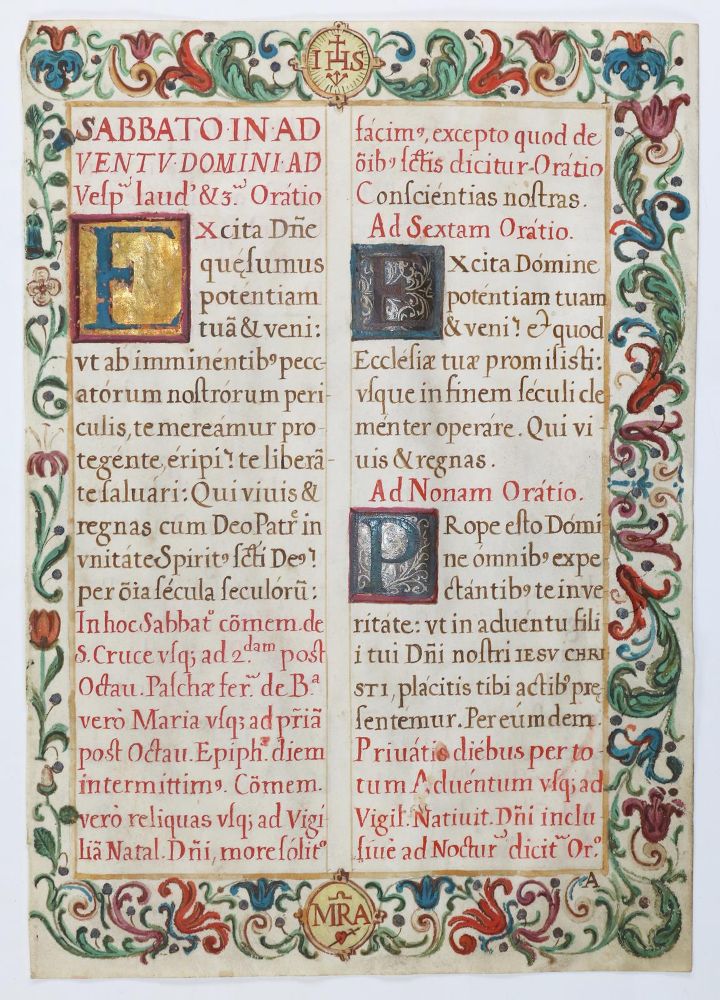 IHS
1
SABBATO·IN·AD
VENTV·DOMINI·AD
Vesp̃ laud' & 3.ª Orátio
EXcita Dñe
quęsumus
poténtiam
tuã & veni:
vt ab imminéntibꝰ pecc
atórum nostrórum peri-
culis, te mereámur pro-
tegente, éripi: te liberã-
te saluári: Qui viuis &
regnas cum Deo Patrᵉ in
vnitáte Spiritꝰ sc̃ti Deꝰ:
per õia sécula seculorũ:
In hoc Sabbatº cõmem. de
S. Cruce vsqꝫ ad 2.ᵈᵃᵐ post
Octau. Paschæ fer.ᵐ de B.ᵃ
verò Maria vsqꝫ ad pr̃iã
post Octau. Epiphª. diem
intermittimꝰ. Cõmem.
verò reliquas vsqꝫ ad Vigi-
liã Natal. Dñi, more sólitº
fácimꝰ, excepto quod de
õibꝰ sc̃tis dicitur. Orátio
Consciéntias nostras.
Ad Sextam Orátio.
EXcita Dómine
poténtiam tuam
& veni: et quod
Ecclésiæ tuæ promisisti:
vsque in finem séculi cle
ménter operáre. Qui vi-
uis & regnas.
Ad Nonam Orátio.
PRope esto Dómi
ne ómnibꝰ expe
ctántibꝰ te in ve
ritáte: vt in aduéntu fili
i tui Dñi nostri IESV CHRI
STI, plácitis tibi actibꝰ prę
sentemur. Per eúmdem.
Priuátis diébus per to-
tum Aduéntum vsqꝫ ad
Vigil. Natiuit. Dñi inclu
siuè ad Nocturᵐ dicitʳ Or.º
A
MRA